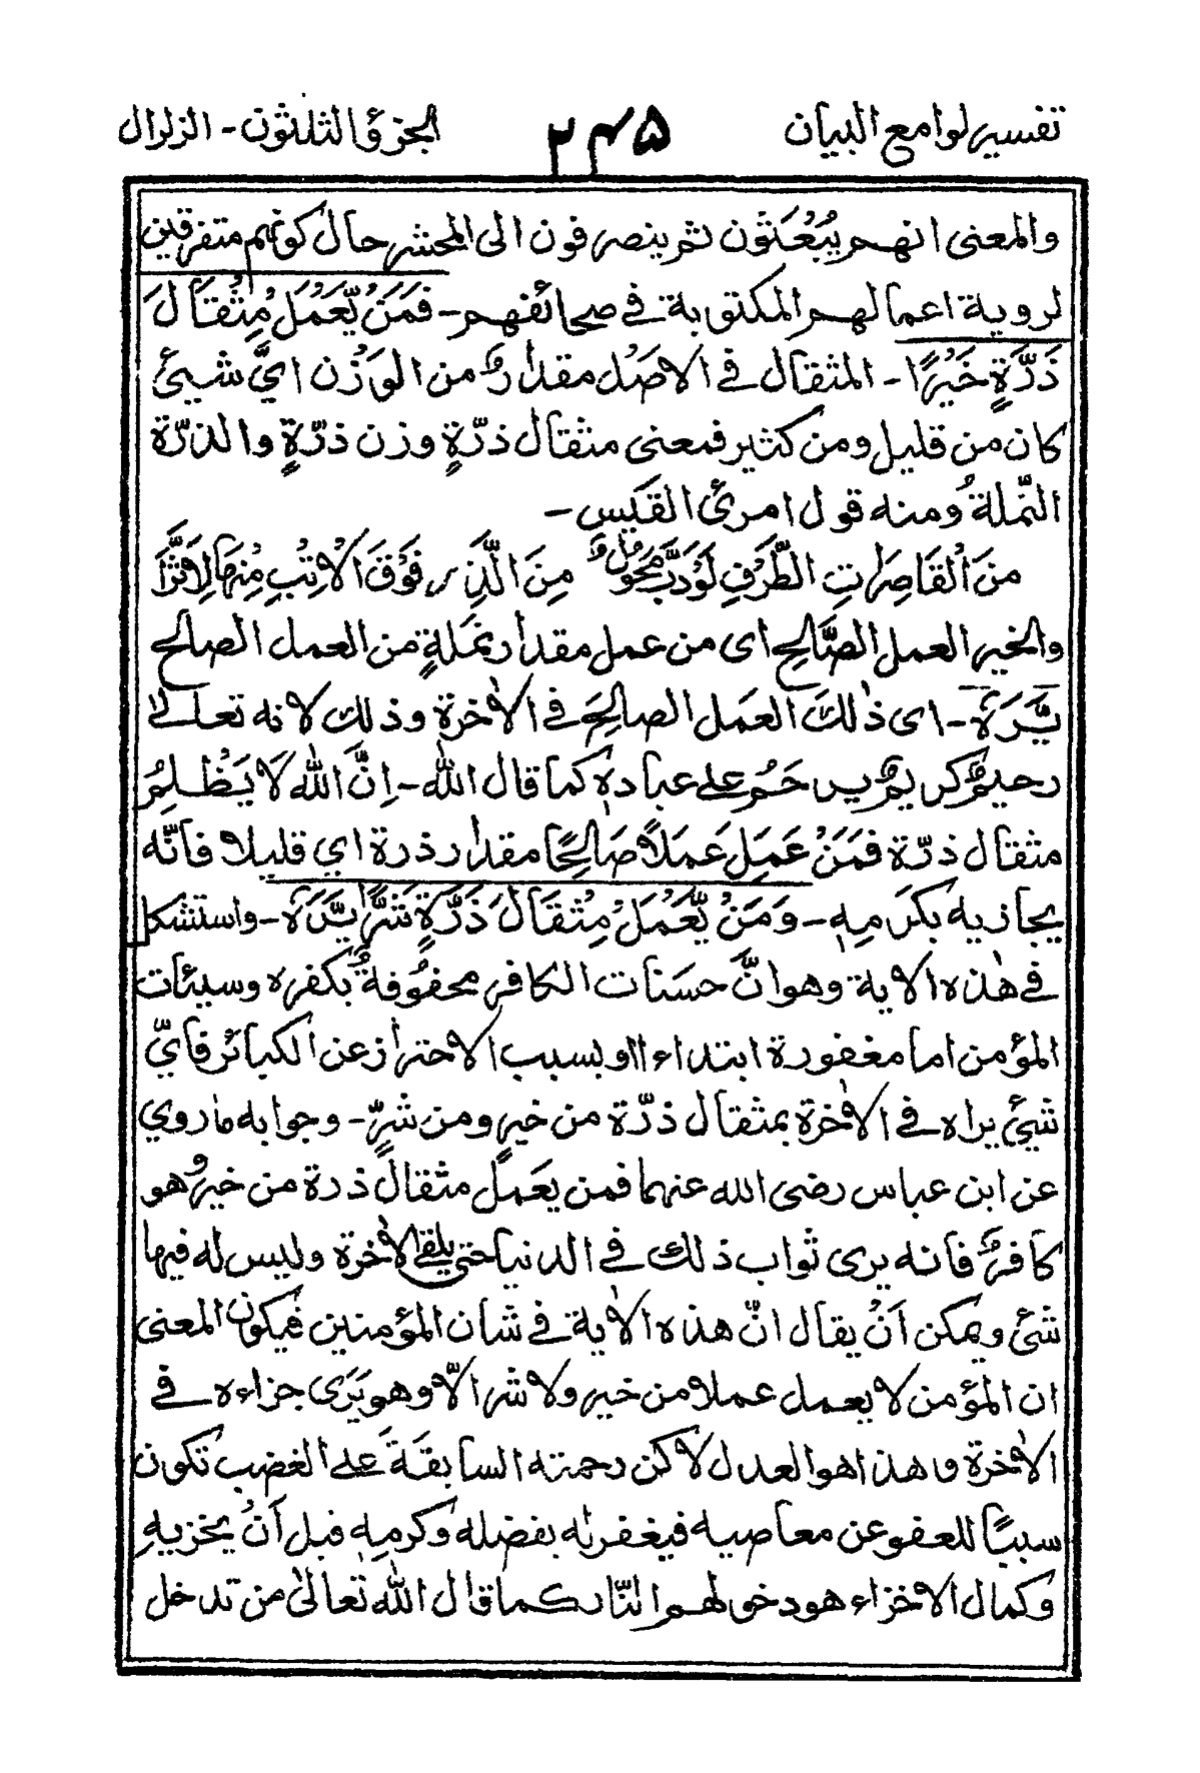 تفسير لوامع البيان ۲۴۵ الجزؤ الثلثون - الزلزال
والمعنى انهم يُبُعَثَون ثم ينصرفون الى المحشر حال كونهم متفرقين
لروية اعمالهم المكتوبة في صحائفهم - فَمَنُ يَّعُمَلُ مِثُقَالَ
ذَرَّةٍ خَيْرًا - المثقال في الاصُل مقدارٌ من الوَزُن ايّ شيئ
كان من قليل ومن كثير فمعنى مثقال ذرّةٍ وزن ذرّةٍ والذرّة
النّملةُ ومنه قول امرئ القَيس -
منَ الُقَاصِراتِ الطَّرُفِ لَوُدَبَّ مُحُوِلٌ مِنَ الَّذِر فَوُقَ الُاِتُبِ مِنُهَا لِاَثَّرَا
والخير العمل الصَّالح اى من عمل مقدار نمَلةٍ من العمل الصالح
يَّرَهٗ - اى ذٰلكَ العمَل الصالِحَ في الاٰخرة وذلك لانه تعالىٰ
رحيمٌ كريمٌ يرحَمُ على عبادهٖ كما قال الله - اِنَّ الله لَا يَظُلِمُ
مثقال ذرّة فَمَنُ عَمِلَ عَمَلًا صَالِحًا مقدار ذرة اي قليلا فانّه
يجازيه بكرَمِهٖ - وَمَنُ يَّعُمَلُ مِثُقَالَ ذَرَّةٍ شَرًّا يَّرَهٗ - واستشكل
في هٰذه الاية وهو انَّ حسَنات الكافر محفُوُفةٌ بكفره وسيئات
المؤمن اما مغفورة ابتداء او بسبب الاحتراز عن الكبائر فايّ
شيئ يراه في الاٰخرة بمثقال ذرّة من خيرٍ ومن شرٍّ - وجوابه ماروي
عن ابن عباس رضى الله عنهما فمن يعَمل مثقالَ ذرة من خير وُهو
كافرٌ فانه يرى ثواب ذلك في الدنيا حتى يلقى الاٰخرة وليس له فيها
شئ ويمكن اَنُ يقال انّ هذه الاٰية في شان المؤمنين فيكون المعنى
ان المؤمن لا يعمل عملا من خير ولا شر الاّ وهو يَرَى جزاءه في
الاٰخرة وهذا هوالعدل لاكن رحمته السابقَةَ على الغضب تكون
سببًا للعفو عن معاصيه فيغفرله بفضله وكرمهٖ قبل اَنُ يخزيهِ
وكمال الاخزاء هو دخولهم النّار كما قال الله تعالىٰ من تدخل